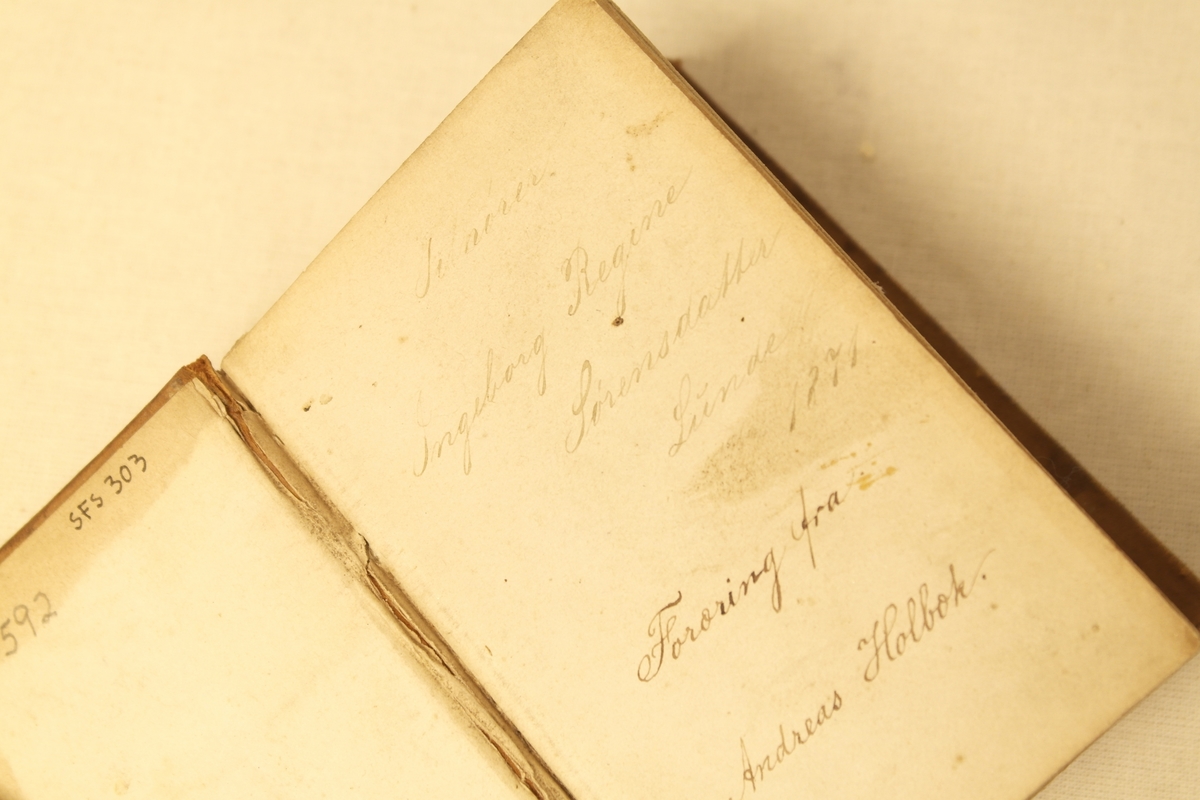 SFS 303
592
Ingeborg Regine
Sørensdatter
Lunde
1871
Foræring fra
Andreas Holbæk.